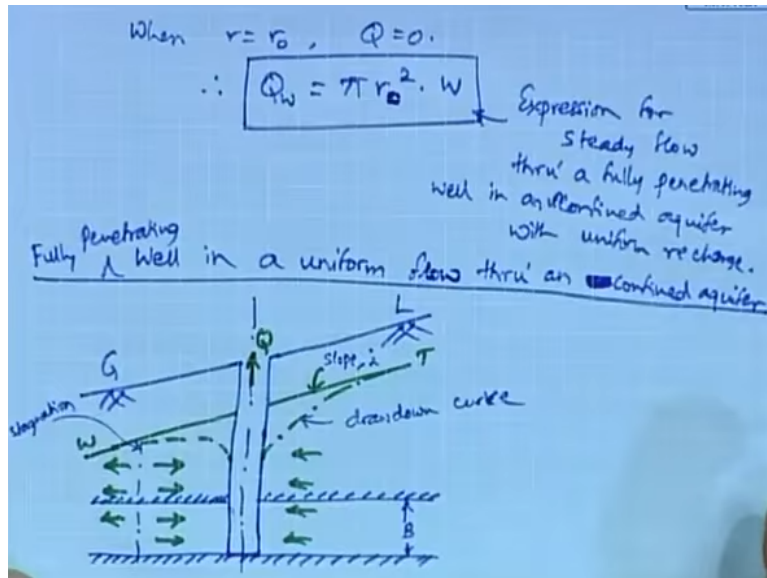 When r = r₀, Q = 0.
∴ Qw = π r₀². W
Expression for
steady flow
thru' a fully penetrating
well in an unconfined aquifer
with uniform recharge.
Fully penetrating Well in a uniform flow thru' an confined aquifer
G
Q
L
slope, i
T
stagnation
drawdown curve
W
B